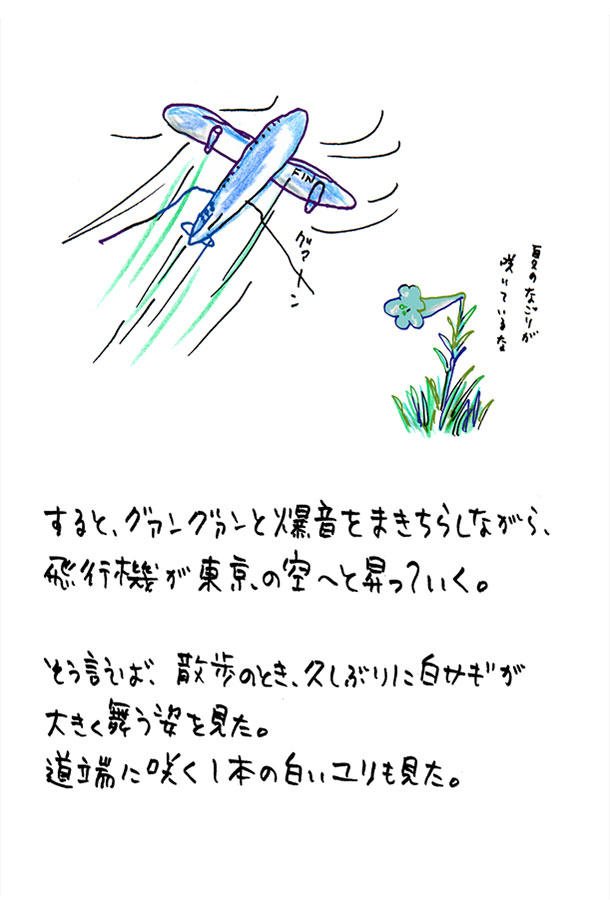 FIN
グァーン
夏のなごりが
咲いているな
すると、グァングァンと爆音をまきちらしながら、
飛行機が東京の空へと昇っていく。
そう言えば、散歩のとき、久しぶりに白サギが
大きく舞う姿を見た。
道端に咲く1本の白いユリも見た。